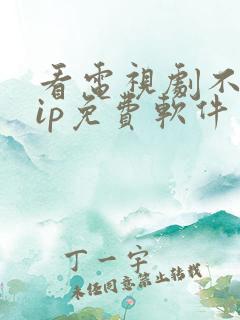 看電視劇不
ip免費軟件
丁一字
未经同意禁止转载